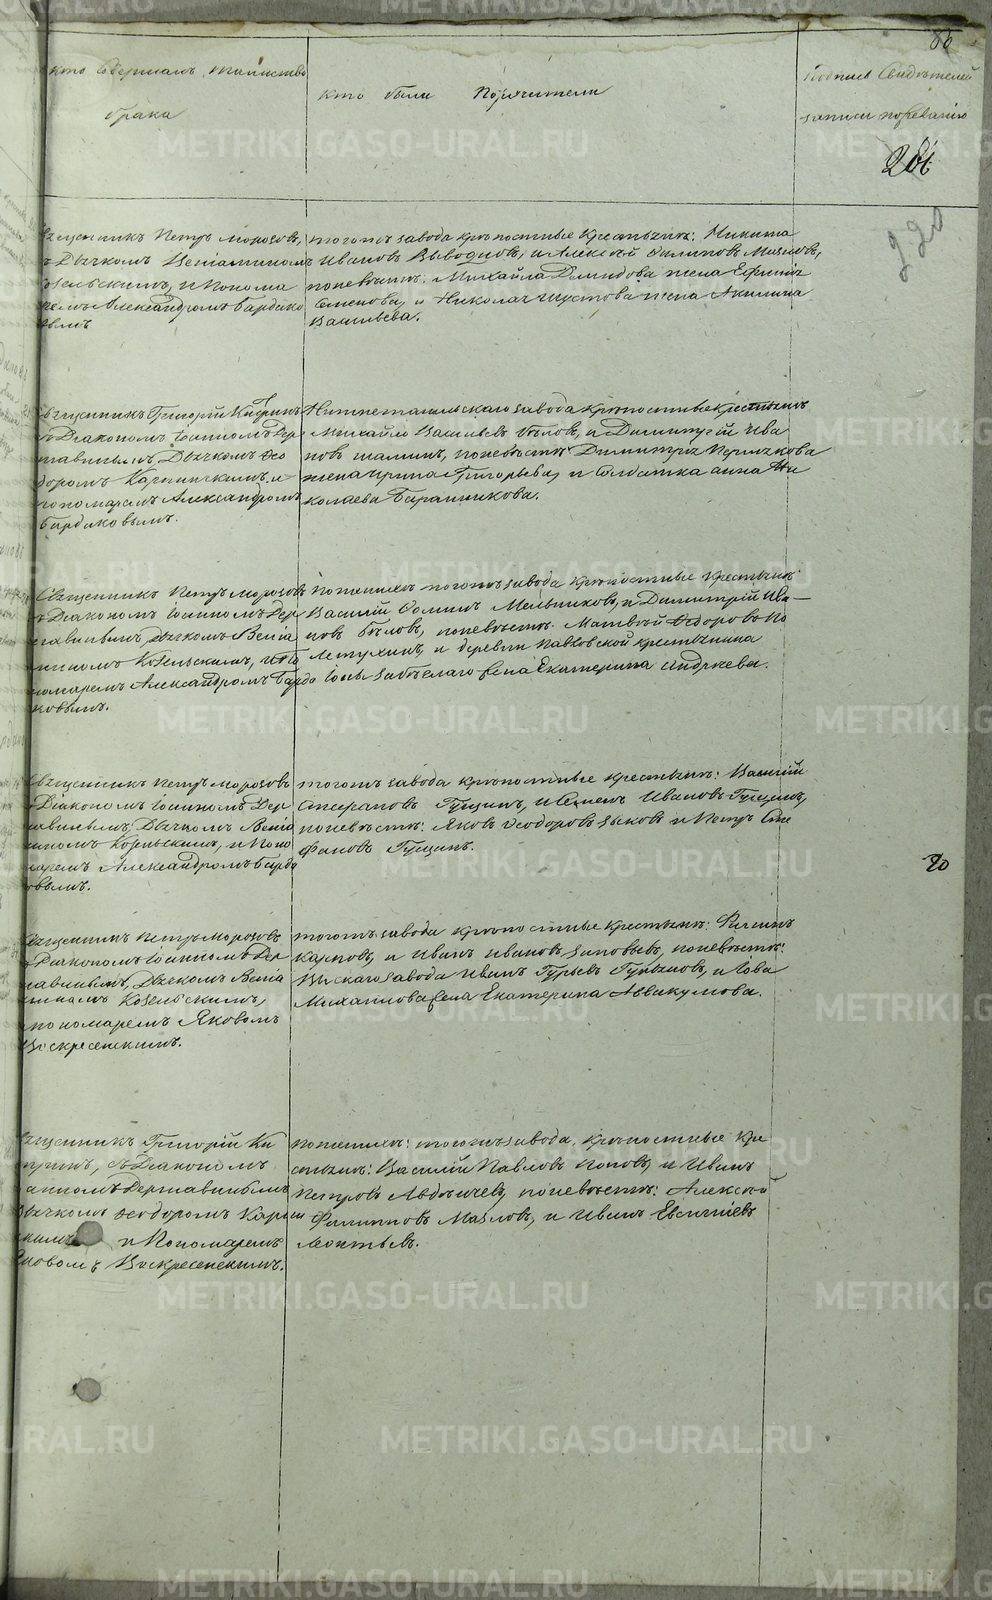 86
Кто Совершалъ таинство
брака
Кто были Поручители
Подпись Свидѣтелей
записи по желанію
220
Священникъ Петръ Морозовъ,
съ Дьячкомъ Веніаминомъ
Козельскимъ, и Понома
ремъ Александромъ Бардако
вымъ
тогожъ завода крѣпостные крестьяне: Никита
Ивановъ Выводцовъ, и Алексѣй Филиповъ Мазловъ,
поневѣстѣ: Михайла Демидова жена
Семенова, и Николая Шустова жена Акилина
Васильева.
Священникъ Григорій Кипринъ
съ Діакономъ Іоанномъ Дер
жавинымъ, Дьячкомъ Ѳео
доромъ Карпинскимъ, и
пономаремъ Александромъ
Бардаковымъ.
Нижнетагильскаго завода крѣпостные крестьяне
Михайло Васильевъ Бѣловъ, и Димитрій Ива
новъ поневѣстѣ: Димитрія Пермякова
жена Ирина Григорьева, и Солдатка Анна Ни
колаева Баранникова.
Священникъ Петръ Морозовъ
съ Діакономъ Іоанномъ Дер
жавинымъ, Дьячкомъ Веніа
миномъ Козельскимъ, и По
номаремъ Александромъ Барда
ковымъ.
пожениху тогожъ завода крѣпостные крестьяне
Василій Ѳоминъ Мельниковъ, и Димитрій Ива-
новъ Бѣловъ, поневѣстѣ: Матвѣй Ѳедоровъ По
летухинъ, и деревни Павловской крестьянина
жена Екатерина Андреева.
Священникъ Петръ Морозовъ
съ Діакономъ Іоанномъ Дер
жавинымъ, Дьячкомъ Веніа
миномъ Козельскимъ, и Поно
маремъ Александромъ Барда
ковымъ.
тогожъ завода крѣпостные крестьяне: Василій
Стефановъ Гущинъ, и Семенъ Ивановъ Гущинъ,
поневѣстѣ: Яковъ Ѳеодоровъ Зыковъ и Петръ Сте
фановъ Гущинъ.
20
Священникъ Петръ Морозовъ
съ Діакономъ Іоанномъ Дер
жавинымъ, Дьячкомъ Веніа
миномъ Козельскимъ,
пономаремъ Яковомъ
Воскресенскимъ.
тогожъ завода крѣпостные крестьяне: Филипъ
Карповъ, и Иванъ Ивановъ Зиновьевъ, поневѣстѣ:
завода Иванъ Гурьевъ и Іова
Михайлова жена Екатерина Аввакумова.
Священникъ Григорій Ки
принъ, съ Діакономъ
Іоанномъ Державинымъ
Дьячкомъ Ѳеодоромъ Карпин
скимъ и Пономаремъ
Яковомъ Воскресенскимъ.
пожениху: тогожъ завода, крѣпостные кре
стьяне: Василій Павловъ Поповъ, и Иванъ
Петровъ Авдѣичевъ, поневѣстѣ: Алексѣй
Филиповъ Мазловъ, и Иванъ Евсигніевъ
Леонтьевъ.
METRIKI.GASO-URAL.RU